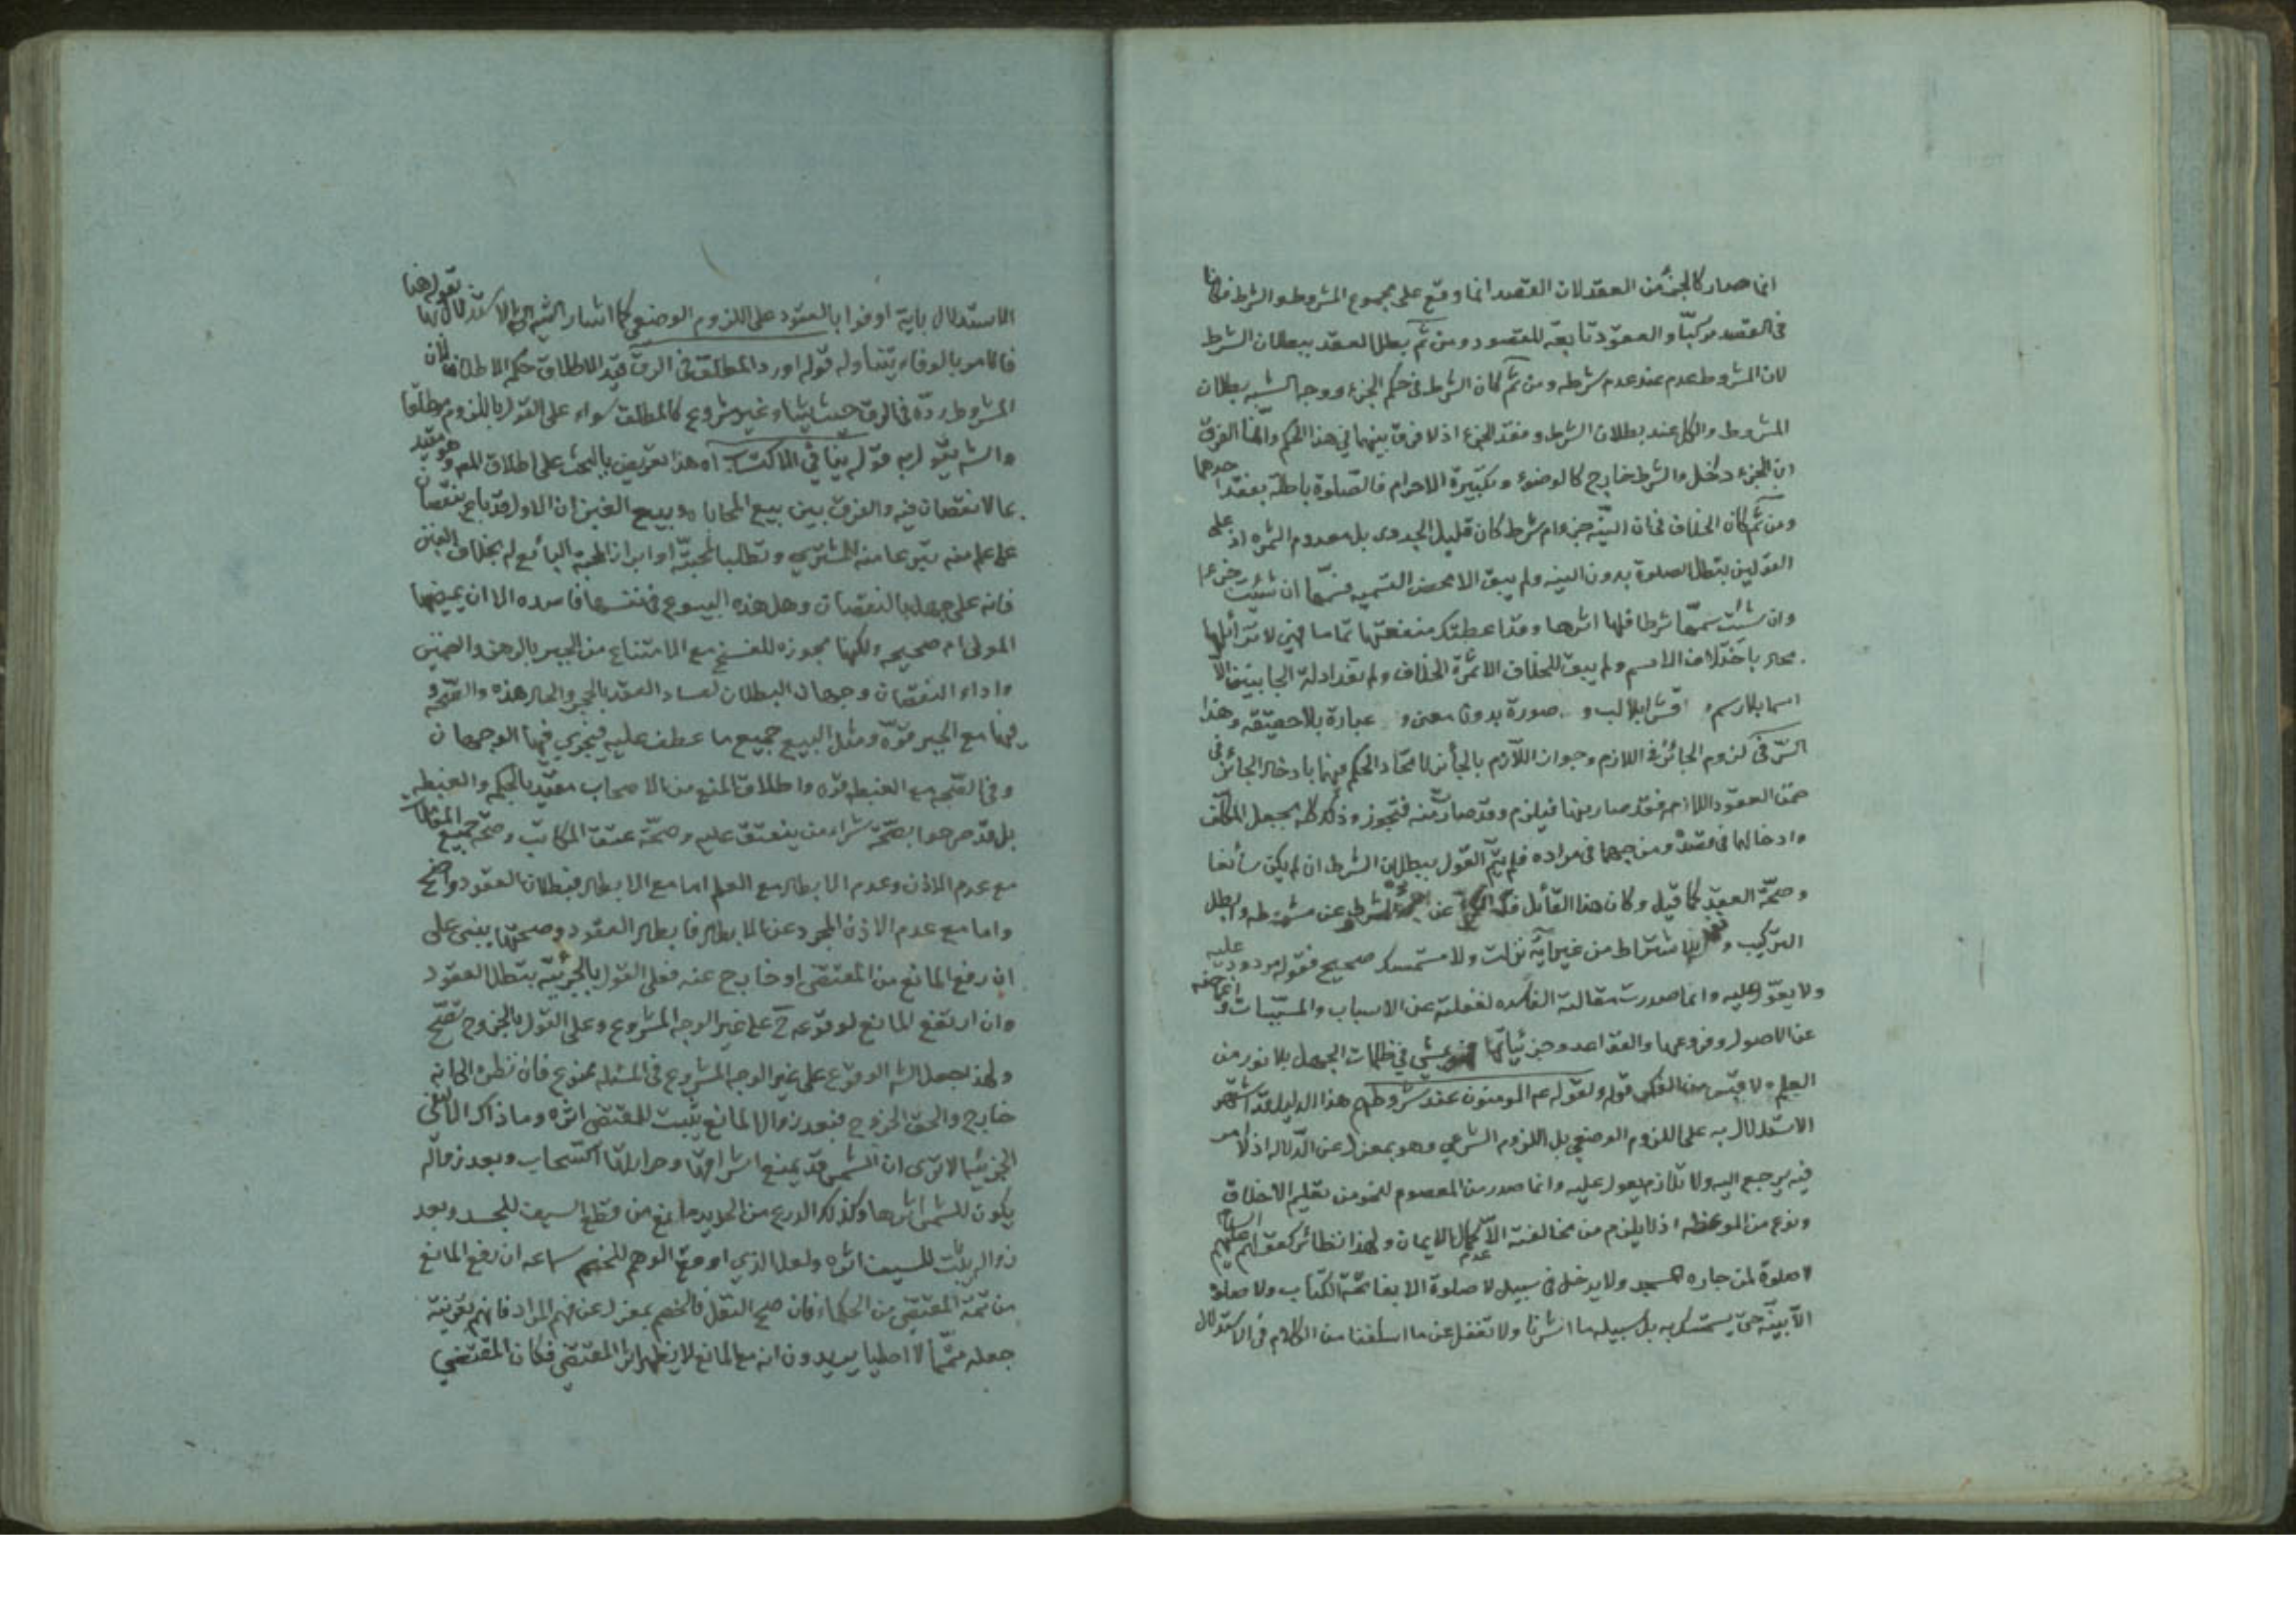 انما صار كالجزء من العقد لان القصد انما وقع على مجموع المشروط والشرط فكانا
فى القصد مركبا والعقود تابعة للقصود ومن ثم يبطل العقد ببطلان الشرط
لان المشروط عدم عند عدم شرطه ومن ثم كان الشرط فى حكم الجزء ووجه الشبه بطلان
المشروط والكل عند بطلان الشرط وفقد الجزء اذ لا فرق بينهما فى هذا الحكم وانما الفرق
ان الجزء دخل والشرط خارج كالوضوء وتكبيرة الاحرام فالصلوة باطلة بفقد احدهما
ومن ثم كان الخلاف فى ان النية جزء ام شرط كان قليل الجدوى بل معدوم الثمره اذ على
القولين تبطل الصلوة بدون النيه ولم يبق الا محض التسميه فسمها ان شئت جزءا
وان شئت سمها شرطا فلها اثرها وقد اعطتك منفعتها تماما فهى لا
باختلاف الاسم ولم يبق للخلاف الا ثمرة الخلاف ولم تفد ادلة الجانبين الا
اسما بلا رسم قشرا بلا لب و صورة بدون معنى و عبارة بلا حقيقة وهذا
السر فى لزوم الجائز فى اللازم وجواز اللازم بالجائز لاتحاد الحكم فيهما بادخال الجائز فى
ضمن العقود اللازمه فقد صار منها فيلزم وقد صارت منه فتجوز وذلك كله بجعل المكلف
وادخالها فى قصده ومزجهما فى مراده فلم يتم القول ببطلان الشرط ان لم يكن سائغا
وصحة العقد كما قيل وكان هذا القائل قد عن الشرط عن مشروطه وابطل
التركيب و الاشتراط من غير اية نزلت ولا مستمسك صحيح فقوله مردود عليه
ولا يعول عليه وانما صدرت مقالته الفاسده لغفلته عن الاسباب والمسببات و
عن الاصول وفروعها والقواعد وجزئياتها يمشى فى ظلمات الجهل بلا نور من
العلم ولا قبس من الفكر قوله ولقوله عم المومنون عند شروطهم هذا الدليل قد اشتهر
الاستدلال به على اللزوم الوضعي بل اللزوم الشرعي وهو بمعزل عن الدلاله اذ لا امر
فيه يرجع اليه ولا تلازم يعول عليه وانما صدر من المعصوم للمومن تعليم الاخلاق
ونوع من الموعظه اذ لا يلزم من مخالفته الا عدم كمال الايمان ولهذا نظائر كقولهم عليهم السلام
لا صلوة لمن جاره المسجد ولا يدخل فى سبيل لا صلوة الا بفاتحة الكتاب ولا صلوة
الا بنية حتى يستمسك به بل سبيله ما اشرنا ولا تغفل عن ما اسلفنا من الكلام فى الاستدلال
الاستدلال باية اوفوا بالعقود على اللزوم الوضعي كما اشار الشه الى الاستدلال بها بقوله هنا
فالامر بالوفاء يتناوله قوله او رد المطلق فى الرق قيد الاطلاق حكم الاطلاق لان
المشروط رده فى الرق حيث يشاء وغير مشروع كالمطلق سواء على القول باللزوم مطلقا
والشه يقول به قوله ينافى الاكتساب اه هذا تعريض بالبحث على اطلاق المصه وهو مقيد
بما لا نقصان فيه والفرق بين بيع المحاباه وبيع الغبن ان الاول قد باع بنقصان
على علم منه تبرعا منه للمشترى وتطلبا لمحبته او ابراز المحبة البائع له بخلاف الغبن
فانه على جهل بالنقصان وهل هذه البيوع فى نفسها فاسده الا ان يمضيها
المولى ام صحيحه ولكنها مجوزه للفسخ مع الامتناع من الجبر بالرهن والضمين
واداء النقصان وجهان البطلان لفساد العقد بالحجر والحال هذه والصحة و
فيها مع الجبر قوة ومثل البيع جميع ما عطف عليه فيجري فيها الوجهان
وفى الصحه مع الغبطه قوه واطلاق المنع من الاصحاب مقيد بالحكم والغبطه
بل قد صرحوا بصحة شراء من ينعتق عليه وصحة عتق المكاتب وصحة جميع المقالات
مع عدم الاذن وعدم الابطال مع العلم اما مع الابطال فبطلان العقود واضح
واما مع عدم الاذن المجرد عن الابطال فابطال العقود وصحتها يبنى على
ان رفع المانع من المقتضى او خارج عنه فعلى القول بالجزئية تبطل العقود
وان ارتفع المانع لوقوعه ح على غير الوجه المشروع وعلى القول بالخروج تصح
ولهذا جعل الشه الوقوع على غير الوجه المشروع فى المسئله ممنوع فان نظره الى انه
خارج والحق الخروج فبعد زوال المانع يثبت للمقتضى اثره وما ذاك الا لنفى
الجزئية الا ترى ان الشمس قد يمنع اشراقها وحرارتها السحاب وبعد زواله
يكون للشمس اثرها وكذلك الدرع من الحديد مانع من قطع السيف للجسد وبعد
زواله يثبت للسيف اثره ولعل الذي اوقع الوهم للخصم سماعه ان رفع المانع
من تتمة المقتضى من الحكماء فان صح النقل فالخصم بمعزل عن فهم المراد فانهم بقرينة
جعله متمما لا اصليا يريدون انه مع المانع لا يظهر اثر المقتضى فكان المقتضى